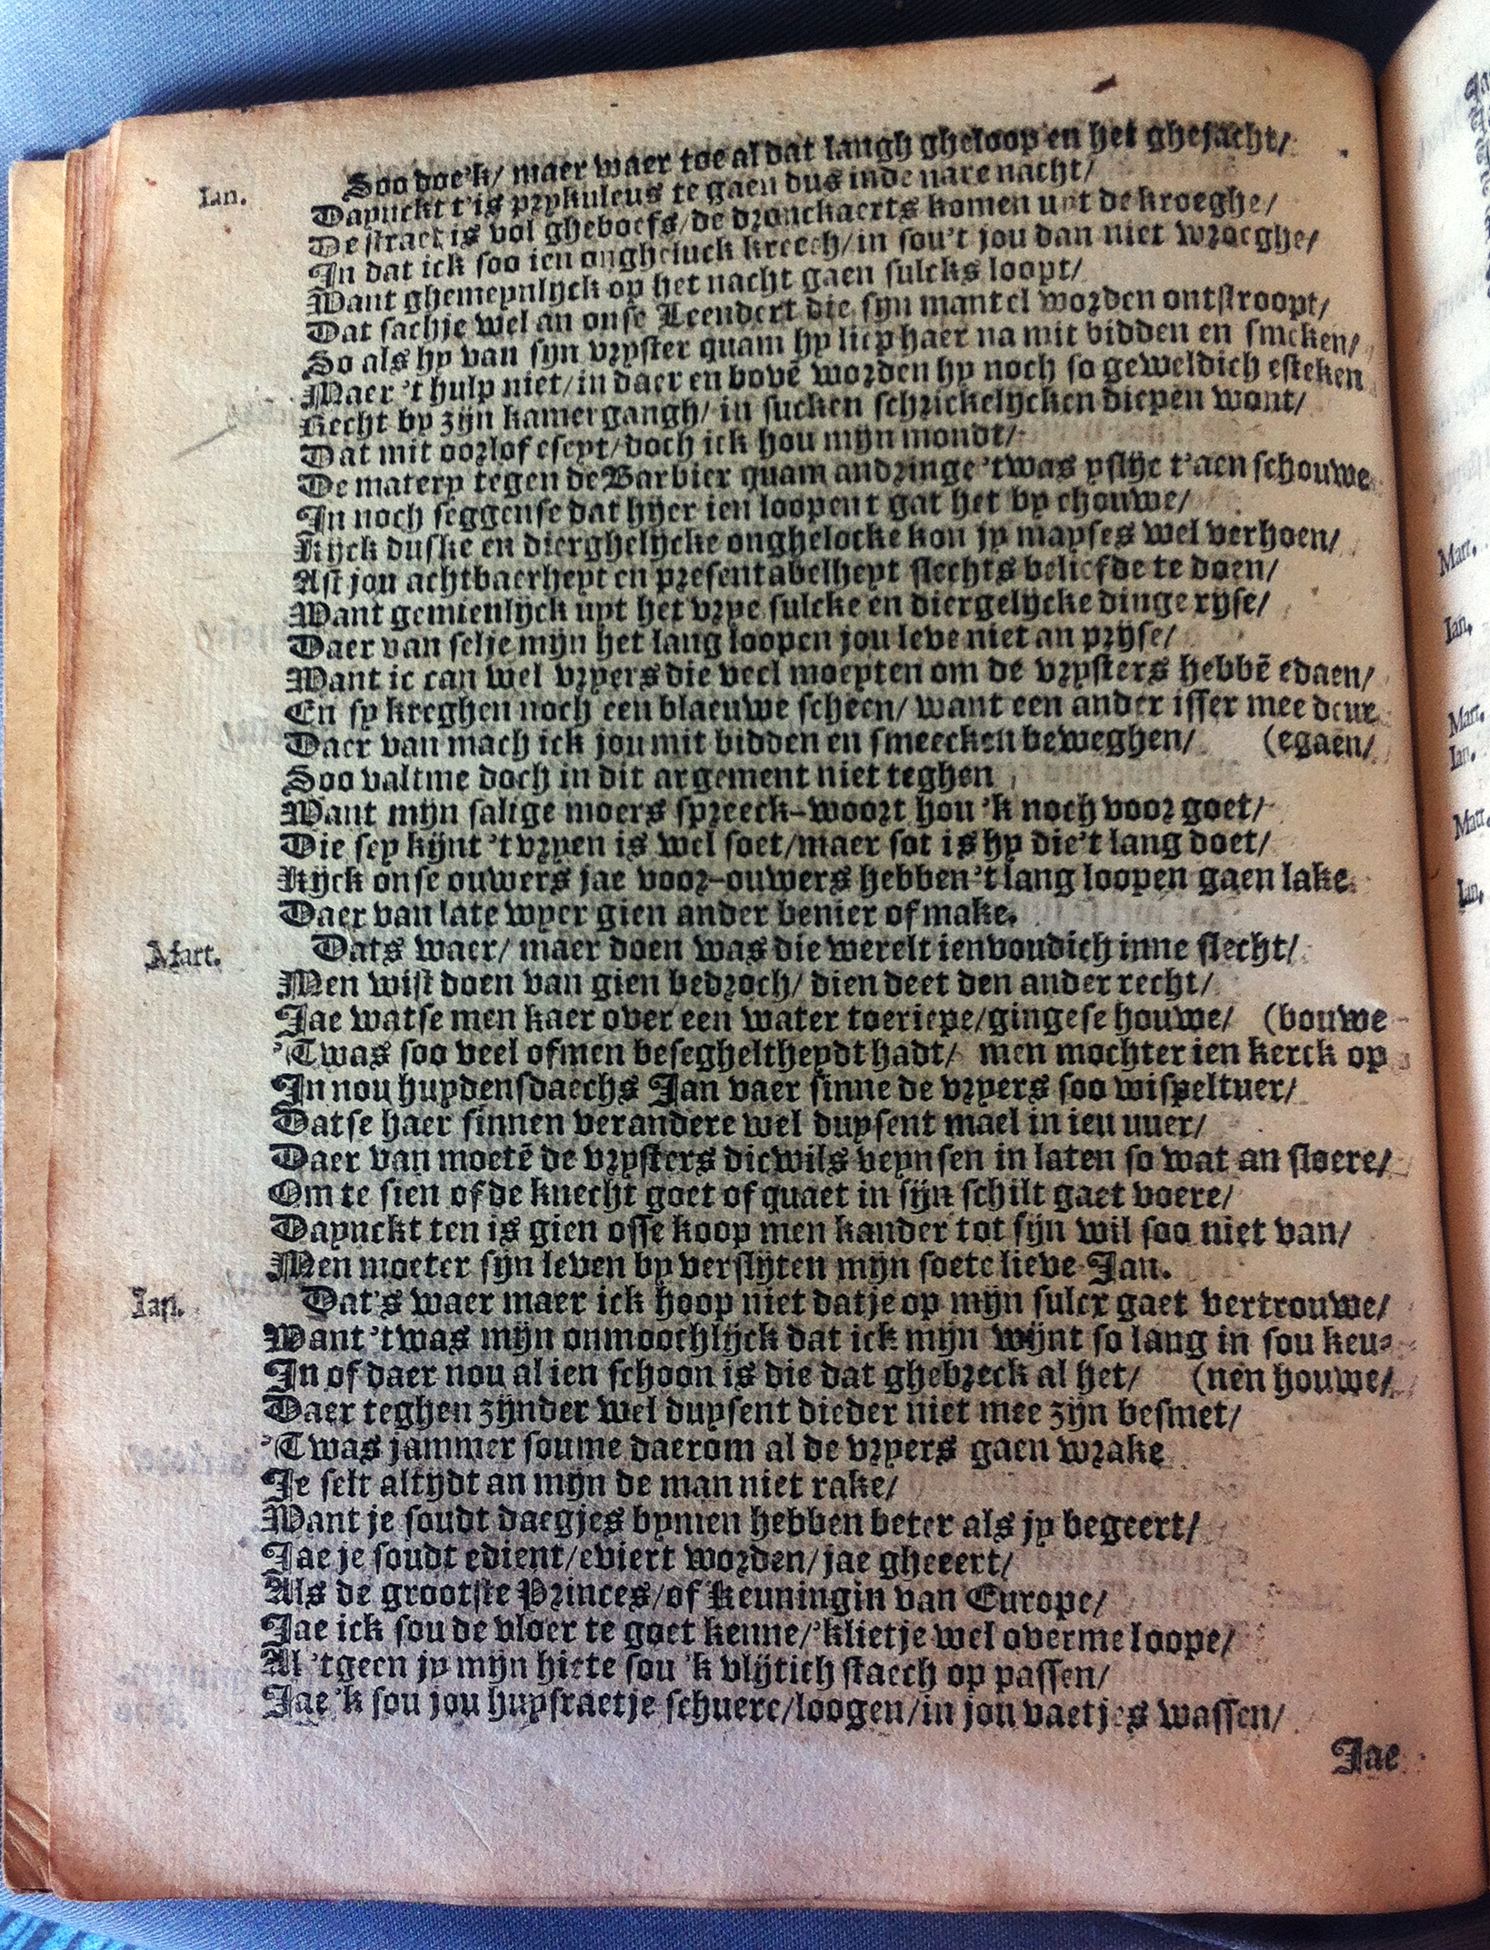 Ian. Soo doe'k/ maer waer toe al dat langh gheloop en het ghejacht/
Dapuckt t'is prykuleus te gaen dus inde nare nacht/
De straet is vol gheboefs/de dronckaerts komen uyt de kroeghe/
In dat ick soo ien ongheluck kreech/in sou't jou dan niet wroeghe/
Want ghemeynlijck op het nacht gaen sulcks loopt/
Dat sachje wel an onse Leendert die sijn mantel worden ontstroopt/
So als hy van sijn vryster quam hy liep haer na mit bidden en smeken/
Maer 't hulp niet/in daer en bovē worden hy noch so geweldich esteken
Recht by zijn kamergangh/ in sucken schrickelijcken diepen wont/
Dat mit oorlof eseyt/doch ick hou mijn mondt/
De matery tegen de Barbier quam andringe 'twas yslijc t'aen schouwe
In noch seggense dat hyer ien loopent gat het by ehouwe/
Kijck duske en dierghelijcke onghelocke kon jy mayses wel verhoen/
Ast jou achtbaerheyt en presentabelheyt slechts beliefde te doen/
Want gemienlijck uyt het vrye sulcke en diergelijcke dinge ryse/
Daer van selje mijn het lang loopen jou leve niet an pryse/
Want ic can wel vryers die veel moeyten om de vrysters hebbē edaen/
En sy kreghen noch een blaeuwe scheen/ want een ander isser mee deur
Daer van mach ick jou mit bidden en smeecken beweghen/ (egaen/
Soo valtme doch in dit argement niet teghen
Want mijn salige moers spreeck-woort hou 'k noch voor goet/
Die sey kijnt 't vryen is wel soet/maer sot is hy die't lang doet/
Kijck onse ouwers jae voor-ouwers hebben 't lang loopen gaen lake
Daer van late wyer gien ander benier of make.
Mart. Dats waer/ maer doen was die werelt ienvoudich inne slecht/
Men wist doen van gien bedroch/ dien deet den ander recht/
Jae watse men kaer over een water toeriepe/gingese houwe/ (bouwe
'Twas soo veel ofmen besegheltheydt hadt/ men mochter ien kerck op
In nou huydensdaechs Jan vaer sinne de vryers soo wispeltuer/
Datse haer sinnen verandere wel duysent mael in ien uuer/
Daer van moetē de vrysters dicwils veynsen in laten so wat an sloere/
Om te sien of de knecht goet of quaet in sijn schilt gaet voere/
Dapuckt ten is gien osse koop men kander tot sijn wil soo niet van/
Men moeter sijn leven by verslijten mijn soete lieve Jan.
Ian. Dat's waer maer ick hoop niet datje op mijn sulcx gaet vertrouwe/
Want 'twas mijn onmoochlijck dat ick mijn wijnt so lang in sou keu-
In of daer nou al ien schoon is die dat ghebreck al het/ (nen houwe/
Daer teghen zijnder wel duysent dieder niet mee zijn besmet/
'Twas jammer soume daerom al de vryers gaen wrake
Je selt altijdt an mijn de man niet rake/
Want je soudt daegjes bymen hebben beter als jy begeert/
Jae je soudt edient/eviert worden/jae gheeert/
Als de grootste Princes/of Keuningin van Europe/
Jae ick sou de vloer te goet kenne/'klietje wel overme loope/
Al 'tgeen jy mijn hiete sou 'k vlijtich staech op passen/
Jae 'k sou jou huysraetje schuere/loogen/in jou vaetjes wassen/
Jae
Mart.
Ian,
Mart.
Ian.
Mart.
Ian,